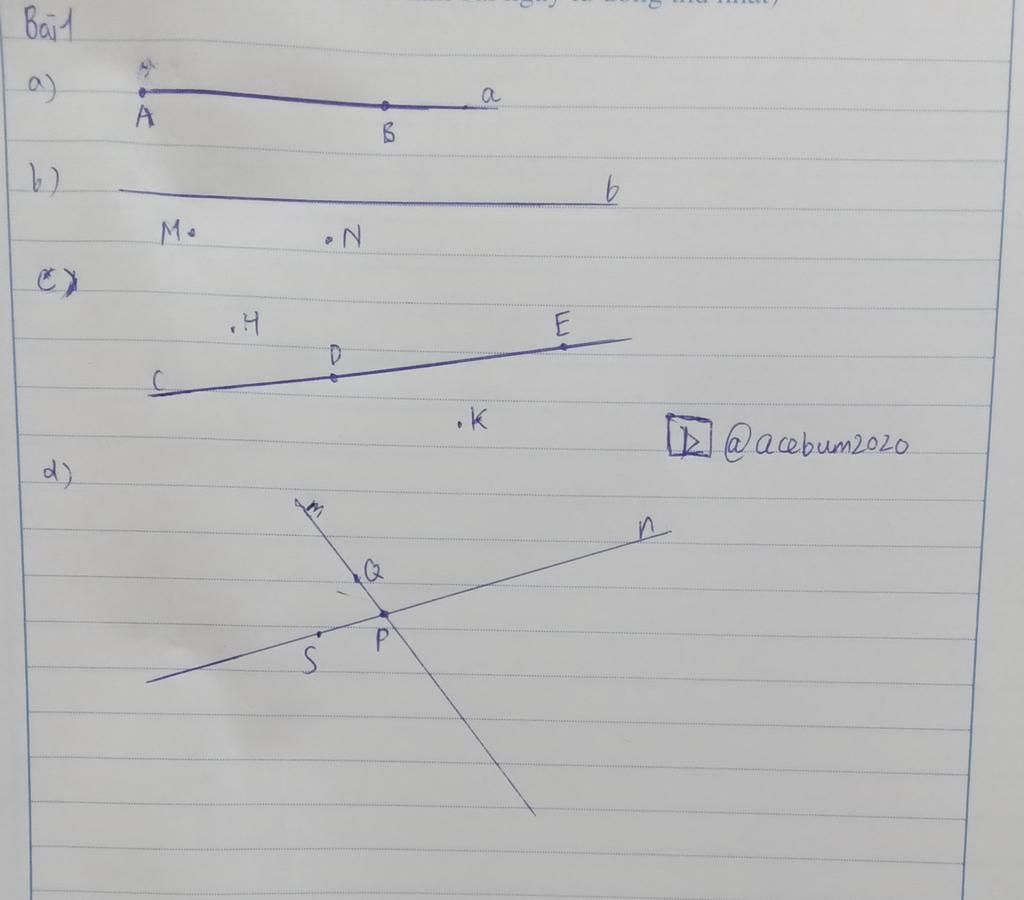 Bài 1
a)
a
A
B
b)
b
M
N
c)
H
E
D
C
K
@acebum2020
d)
m
n
Q
P
S